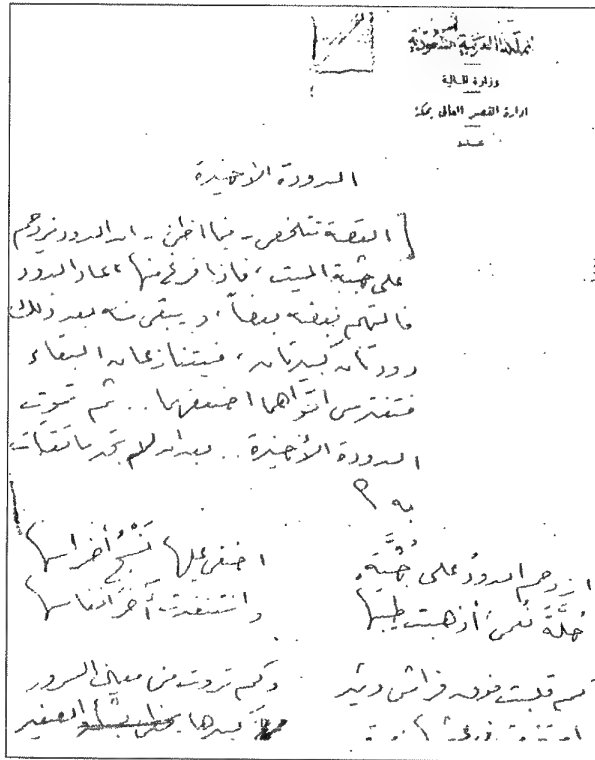 المملكة العربية السعودية
وزارة المالية
ادارة القصر العالى بمكة
عدد
الدودة الأخيرة
القصة تتلخص - فيما اظن - ان الدود يزدحم
على جثة الميت، فاذا فرغ منها، عاد الدود
فالتهم بعضه بعضاً، ويبقى منه بعد ذلك
دودتان كبيرتان، فيتنازعان البقاء
فتفترس اقواهما اضعفهما.. ثم تموت
الدودة الأخيرة.. بعد ان لم تجد ما تقتات
به؟
ازدحم الدودُ على جُثَّةٍ اضفى عليها نَسْجُ أضراسها
حُلَّةَ نُعمىً أذهبت طيبها واستنفدت آخرَ انفاسها
كم قلبت فوق فراش وثير وكم تروت من معاني السرور
كبيرها الصغير